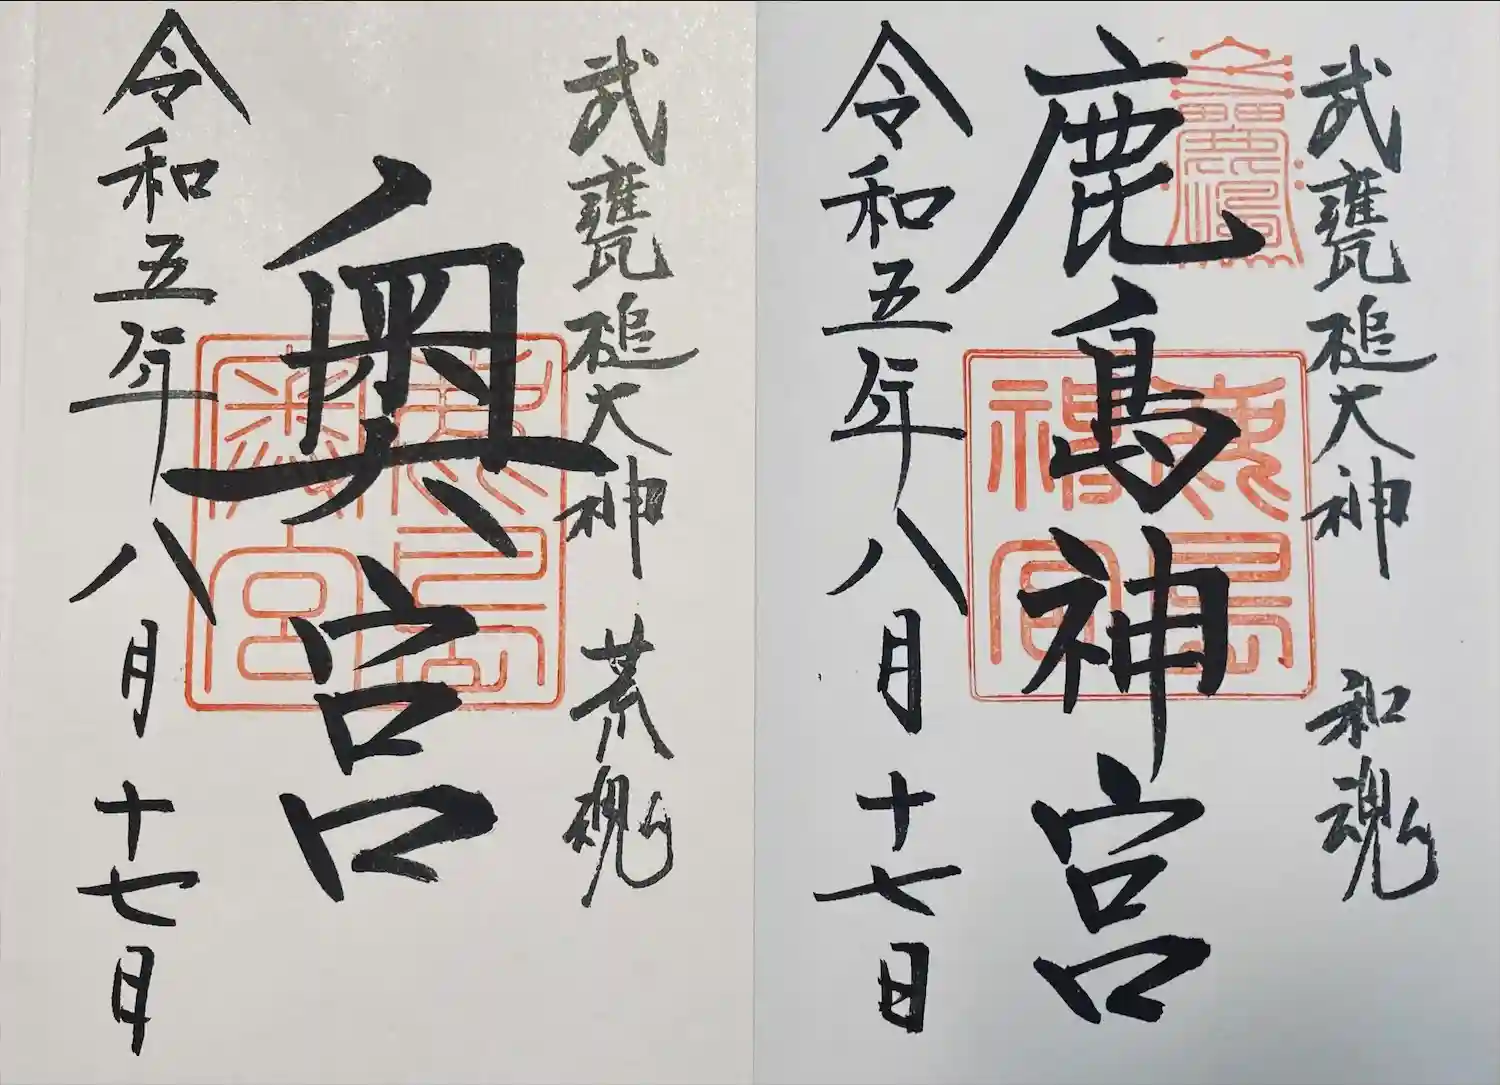 武甕槌大神 和魂
鹿島神宮
鹿島
神宮
令和五年八月十七日
武甕槌大神 荒魂
奥宮
鹿島
奥宮
令和五年八月十七日